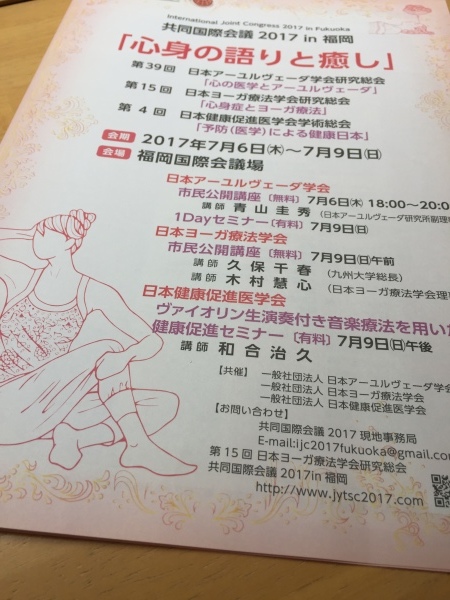 International Joint Congress 2017 in Fukuoka
共同国際会議 2017 in 福岡
「心身の語りと癒し」
第39回 日本アーユルヴェーダ学会研究総会
「心の医学とアーユルヴェーダ」
第15回 日本ヨーガ療法学会研究総会
「心身症とヨーガ療法」
第 4 回 日本健康促進医学会学術総会
「予防(医学)による健康日本」
会期 2017年7月6日(木)～7月9日(日)
会場 福岡国際会議場
日本アーユルヴェーダ学会
市民公開講座 [無料] 7月6日(木) 18:00～20:0
講師 青山圭秀 (日本アーユルヴェーダ研究所副理
1Dayセミナー [有料] 7月9日(日)
日本ヨーガ療法学会
市民公開講座 [無料] 7月9日(日)午前
講師 久保千春 (九州大学総長)
講師 木村慧心 (日本ヨーガ療法学会理
日本健康促進医学会
ヴァイオリン生演奏付き音楽療法を用いた
健康促進セミナー [有料] 7月9日(日)午後
講師 和合治久
【共催】 一般社団法人 日本アーユルヴェーダ学会
一般社団法人 日本ヨーガ療法学会
一般社団法人 日本健康促進医学会
【お問い合わせ】
共同国際会議 2017 現地事務局
E-mail:ijc2017fukuoka@gmail.com
第15回 日本ヨーガ療法学会研究総会
共同国際会議 2017in 福岡
http://www.jytsc2017.com